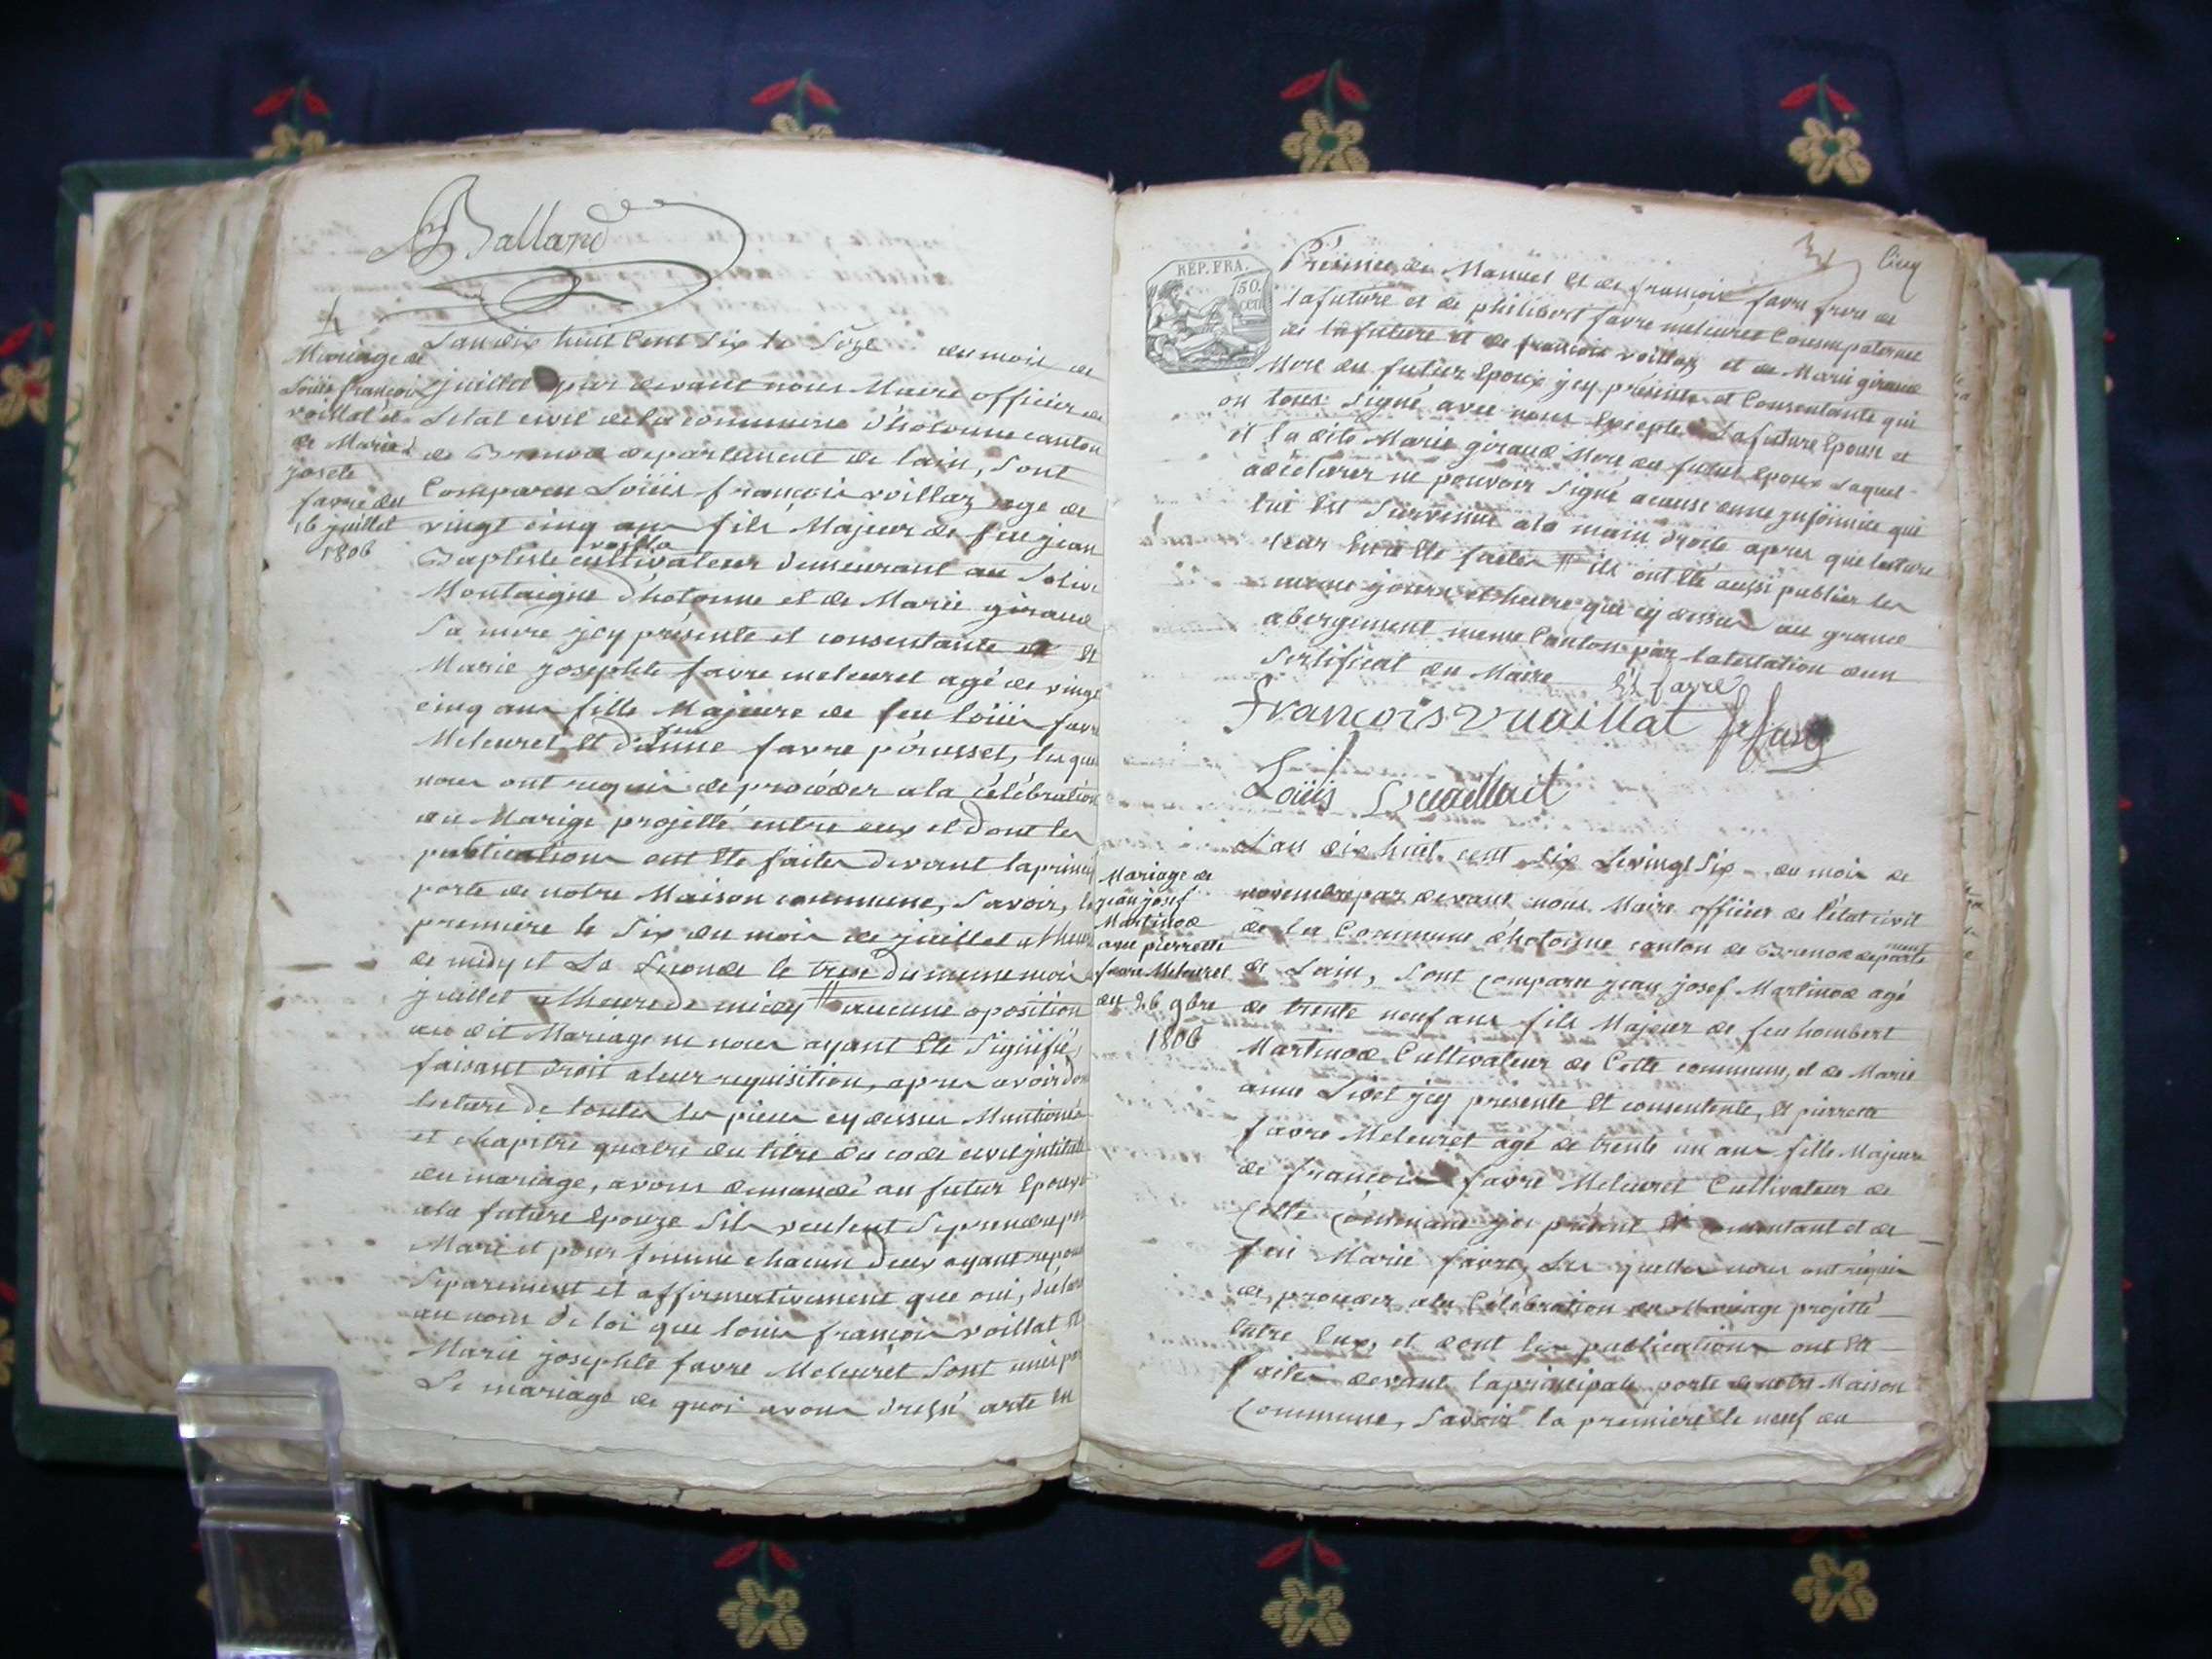 Balland
Mariage de
Louis françois
voillat et
de Marie
josete
favre du
16 juillet
1806
Lan dix huit Cent Six le Sèze du mois de
juillet par devant nous Maire officier de
Letat civil de la commune d'hotonne canton
de Brenod departement de lain, Sont
Comparu Loüis françois voillaz age de
vingt cinq ans fils Majeur de feu jean
Baptiste voilla cultivateur demeurant au
Montaigne d'hotonne et de Marie giraud
Sa mere jcy présente et consentante et
Marie josephte favre meleuret agé de vingt
cinq ans fille Majeure de feu loüis favre
Meleuret Et d'anne favre pérusset, les quels
nous ont requis de procéder a la célébration
du Marige projetté entre eux et dont les
publications ont Eté faites devant la
porte de notre Maison commune, Savoir, la
premiere le Six du mois de juillet a lheure
de midy et La Seconde le treze du meme mois
juillet a lheure de midy # aucune oposition
au dit Mariage ne nous ayant Eté Signifié,
faisant droit a leur requisition, apres avoir
lecture de toutes les pieces cy dessus Mantionés
et chapitre quatre du titre du code civil jntitulé
du mariage, avons demandé au futur Epoux
a la future Epouze Sils veulent Se prendre pour
Mari et pour femme chacun deux ayant
Separement et affirmativement que oui,
au nom de loi que louis françois voillat Et
Marie josephte favre Meleuret Sont unis par
Le mariage de quoi avons dressé acte En
Cinq
REP. FRA.
50.
cen
Présence de Manuel et de françois favre frere de
la future et de philibert favre meleuret Cousin paternel
de la future et de françois voillaz et de Marie giraud
Mere du futur Epoux jcy présente et Consentante qui
on tous Signé avec nous Excepte La future Epouse et
et la dite Marie giraud Mere du futur Epoux Laquel
a déclarer ne pouvoir Signé a cause dune jnfirmite qui
lui Est Survenue a la main droite apres que lecture
leur En a Eté faites # ils ont Eté aussi publier les
meme jours et heure que cy dessus au grand
abergement meme Canton par latestation dun
Sertificat du Maire
favre
françois vuaillat
Loüis Vuaillait
Mariage de
jean josef
Martinod
avec pierrette
favre Meleuret
du 26 9bre
1806
Lan dix huit cent six Le vingt Six du mois de
novembre par devant nous Maire officier de l'état civil
de la Commune d'hotonne canton de Brenod departement
de Lain, Sont comparu jean josef Martinod agé
de trente neuf ans fils Majeur de feu hombert
Martinod Cultivateur de Cette commune, et de Marie
anne jcy presente Et consentente, Et pierrette
favre Meleuret agé de trente un ans fille Majeure
de françois favre Meleuret Cultivateur de
Cette Commune jci présent Et consentant et de
feu Marie favre, Les quelles nous ont requis
de proceder a la Célébration du Mariage projetté
Entre Eux, et dont les publications ont Eté
faites devant la principale porte de notre Maison
Commune, Savoir la premiere le neuf du